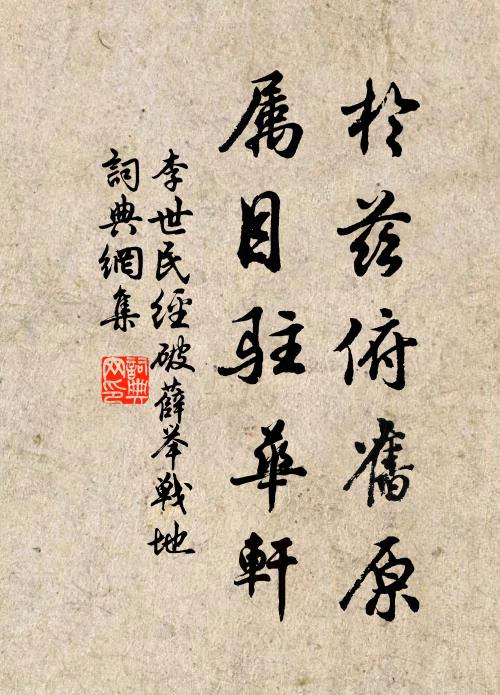 於茲俯舊原
属目駐華軒
李世民經破薛举戰地
詞典網集
詞典